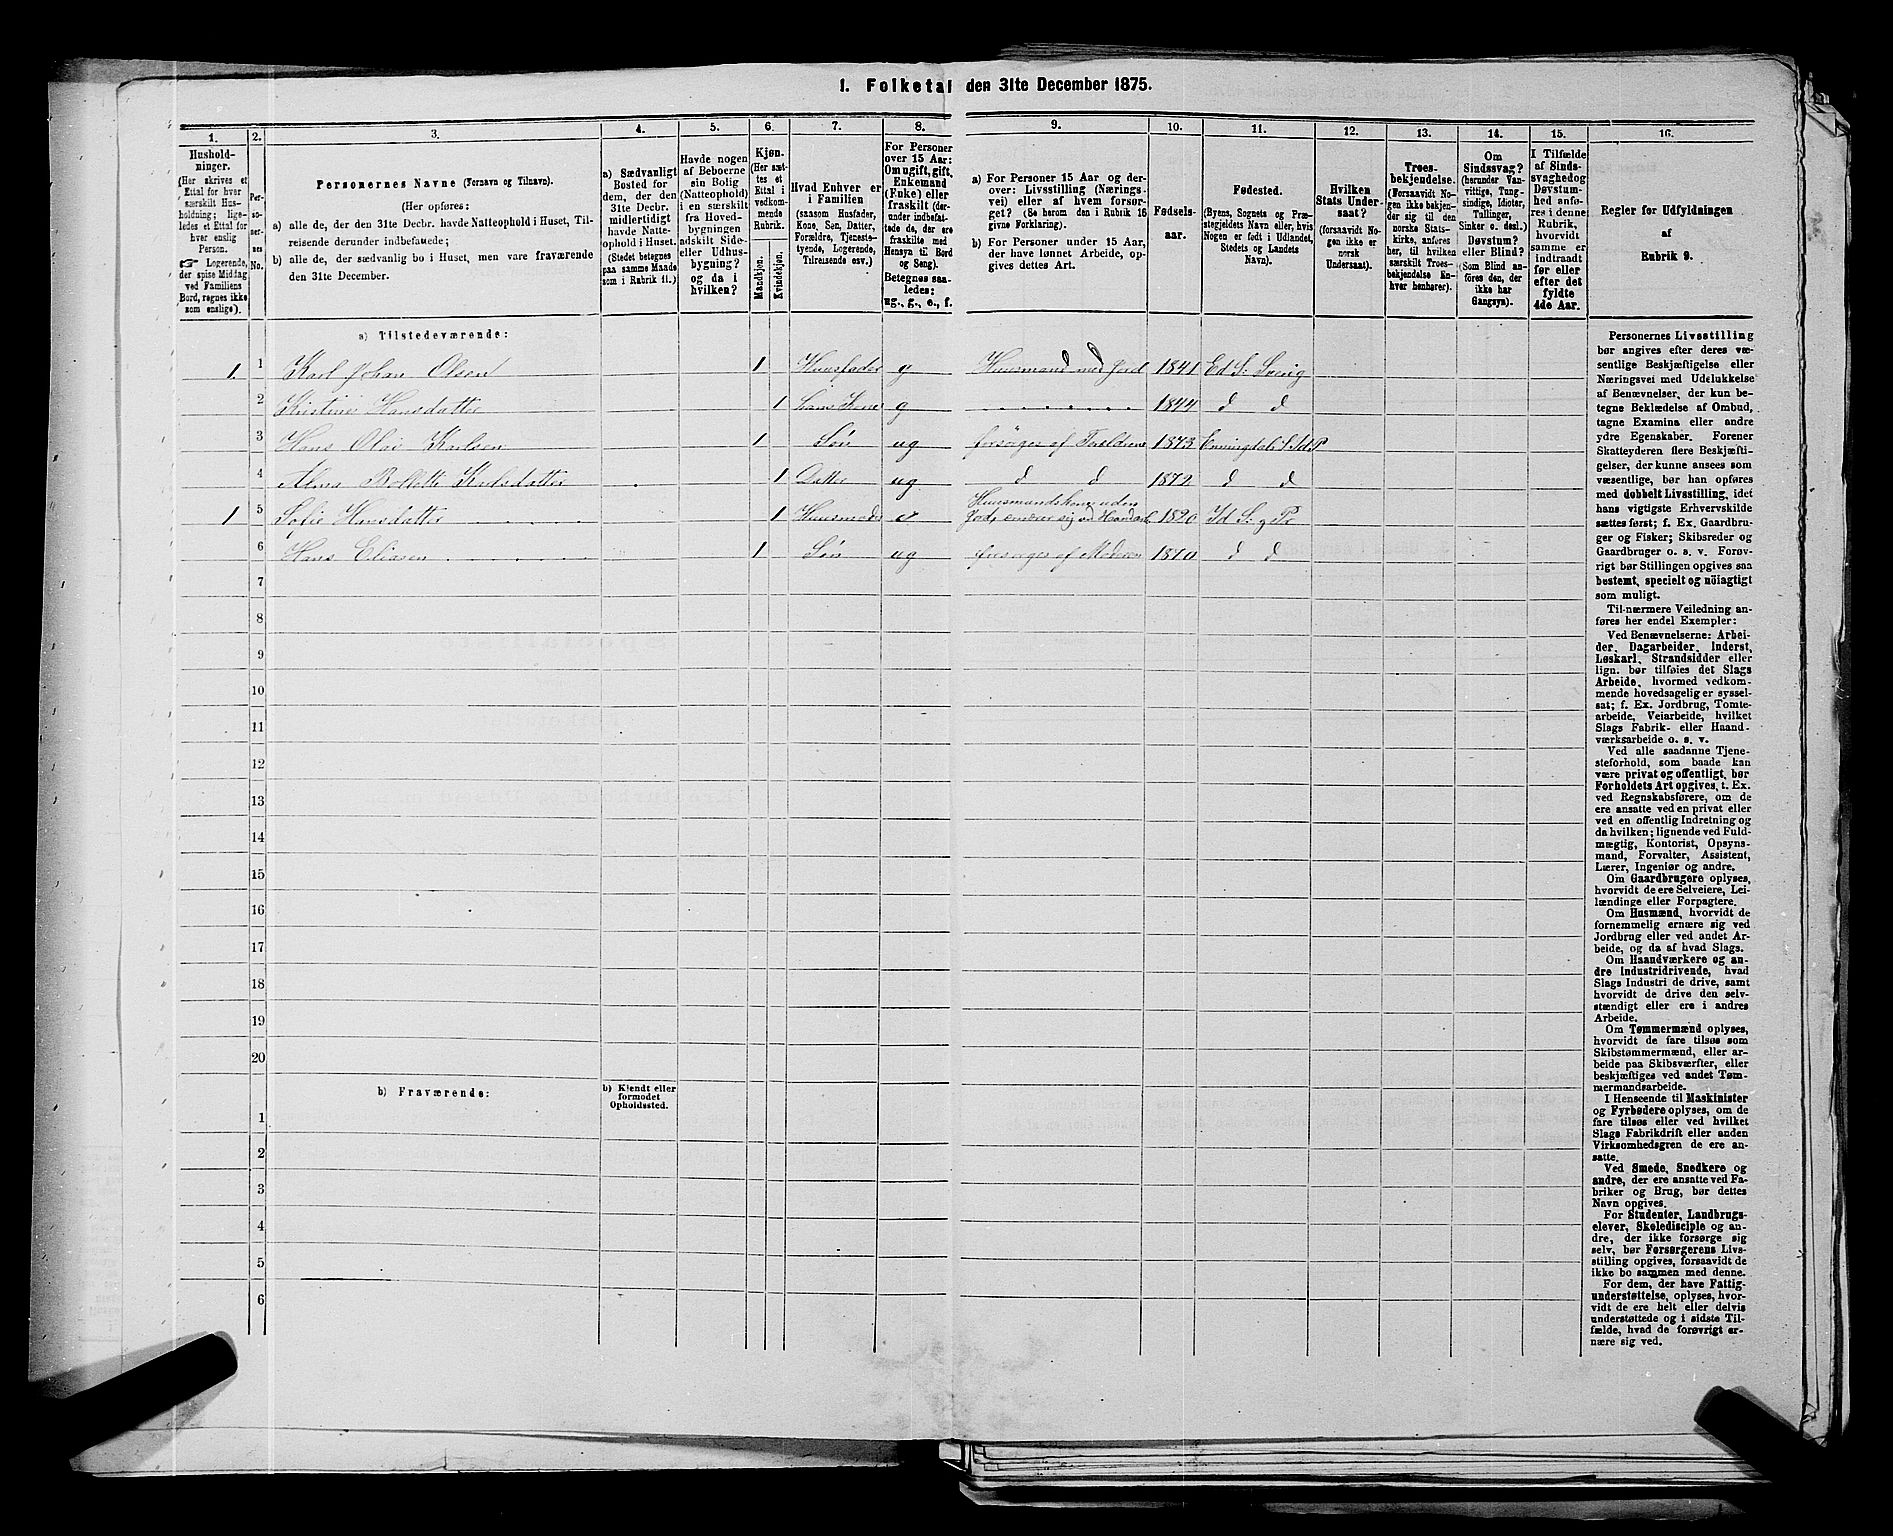 1. Folketal den 31te December 1875.
1.
Hushold-
ninger.
(Her skrives et
Ettal for hver
særskilt Hus-
holdning; lige-
ledes et Ettal for
hver enslig
Person.
Logerende,
der spise Middag
ved Familiens
Bord, regnes ikke
som enslige).
2.
Per-
so-
ner-
nes
No.
3.
Personernes Navne (Fornavn og Tilnavn).
(Her opføres:
a) alle de, der den 31te Decbr. havde Natteophold i Huset, Til-
reisende derunder indbefattede;
b) alle de, der sædvanlig bo i Huset, men vare fraværende
den 31te December.
4.
a) Sædvanligt
Bosted for
dem, der den
31te Decbr.
midlertidigt
havde Natte-
ophold i Huset.
(Stedet betegnes
paa samme Maade
som i Rubrik 11.)
5.
Havde nogen
af Beboerne
sin Bolig
(Natteophold)
i en særskilt
fra Hoved-
bygningen
adskilt Side-
eller Udhus-
bygning?
og da i
hvilken?
6.
Kjøn.
(Her sæt-
tes et
Ettal i
vedkom-
mende
Rubrik.
Mandkjøn.
Kvindekjøn.
7.
Hvad Enhver er
i Familien
(saasom Husfader,
Kone, Søn, Datter,
Forældre, Tjeneste-
tyende, Logerende,
Tilreisende osv.)
8.
For Personer
over 15 Aar:
Om ugift, gift,
Enkemand
(Enke) eller
fraskilt (der-
under indbefat-
tede de, der ere
fraskilte med
Hensyn til Bord
og Seng).
Betegnes saa-
ledes:
ug., g., e., f.
9.
a) For Personer 15 Aar og der-
over: Livsstilling (Nærings-
vei) eller af hvem forsør-
get? (Se herom den i Rubrik 16
givne Forklaring).
b) For Personer under 15 Aar,
der have lønnet Arbeide, op-
gives dettes Art.
10.
Fødsels-
aar.
11.
Fødested.
(Byens, Sognets og Præ-
stegjeldets Navn eller, hvis
Nogen er født i Udlandet,
Stedets og Landets
Navn).
12.
Hvilken
Stats Under-
saat?
(forsaavidt No-
gen ikke er
norsk
Undersaat).
13.
Troes-
bekjendelse.
(Forsaavidt No-
gen ikke bekjen-
der sig til den
norske Stats-
kirke, anføres
her, til hvilken
særskilt Troes-
bekjendelse En-
hver henhører).
14.
Om
Sindssvag?
(herunder Van-
vittige, Tung-
sindige, Idioter,
Tullinger,
Sinker o. desl.)
Døvstum?
eller Blind?
(Som Blind an-
føres den, der
ikke har
Gangsyn).
15.
I Tilfælde
af Sinds-
svaghed og
Døvstum-
hed anfø-
res i denne
Rubrik,
hvorvidt
samme er
indtraadt
før eller
efter det
fyldte
4de Aar.
16.
Regler for Udfyldningen
af
Rubrik 9.
a) Tilstedeværende:
1. 1 Karl Johan Olsen 1 Huusfader g Huusmand med Jord 1841 Ed S. Sverig
2 Kristine Hansdatter 1 hans Kone g 1844 d d
3 Hans Olai Karlsen 1 Søn ug forsørges af Forældrene 1873 Enningdals S. Id P
4 Alma Bollette Karlsdatter 1 Datter ug d d 1872 d d
1 5 Sofie Hansdatter 1 Huusmoder e Huusmandskone uden
Jord, ernærer sig ved Haandarb. 1820 Id S. og Pr
6 Hans Eliasen 1 Søn ug forsørges af Moderen 1870 d d
7
8
9
10
11
12
13
14
15
16
17
18
19
20
b) Fraværende:
b) Kjendt eller
formodet
Opholdssted.
1
2
3
4
5
6
Personernes Livsstilling
bør angives efter deres væ-
sentlige Beskjæftigelse eller
Næringsvei med Udelukkelse
af Benævnelser, der kun be-
tegne Beklædelse af Ombud,
tagne Examina eller andre
ydre Egenskaber. Forener
Skatteyderen flere Beskjæfti-
gelser, der kunne ansees som
væsentlige, bør han opføres
med dobbelt Livsstilling, idet
hans vigtigste Erhvervskilde
sættes først; f. Ex. Gaardbru-
ger og Fisker; Skibsreder og
Gaardbruger o. s. v. Forøv-
rigt bør Stillingen opgives saa
bestemt, specielt og nöiagtigt
som muligt.
Til nærmere Veiledning an-
føres her endel Exempler:
Ved Benævnelserne: Arbei-
der, Dagarbeider, Inderst,
Løskarl, Strandsidder eller
lign. bør tilføies det Slags
Arbeide, hvormed vedkom-
mende hovedsagelig er syssel-
sat; f. Ex. Jordbrug, Tomte-
arbeide, Veiarbeide, hvilket
Slags Fabrik- eller Haand-
værksarbeide o. s. v.
Ved alle saadanne Tjene-
steforhold, som baade kan
være privat og offentligt, bør
Forholdets Art opgives, t. Ex.
ved Regnskabsførere, om de
ere ansatte ved en privat eller
ved en offentlig Indretning og
da hvilken; lignende ved Fuld-
mægtig, Kontorist, Opsyns-
mand, Forvalter, Assistent,
Lærer, Ingeniør og andre.
Om Gaardbrugere oplyses,
hvorvidt de ere Selveiere, Lei-
lændinge eller Forpagtere.
Om Husmænd, hvorvidt de
fornemmelig ernære sig ved
Jordbrug eller ved andet Ar-
beide, og da af hvad Slags.
Om Haandværkere og an-
dre Industridrivende, hvad
Slags Industri de drive, samt
hvorvidt de drive den selv-
stændigt eller ere i andres
Arbeide.
Om Tømmermænd oplyses,
hvorvidt de fare tilsøs som
Skibstømmermænd, eller ar-
beide paa Skibsværfter, eller
beskjæftiges ved andet Tøm-
mermandsarbeide.
I Henseende til Maskinister
og Fyrbødere oplyses, om de
fare tilsøs eller ved hvilket
Slags Fabrikdrift eller anden
Virksomhedsgren de ere an-
satte.
Ved Smede, Snedkere og
andre, der ere ansatte ved Fa-
briker og Brug, bør dettes
Navn opgives.
For Studenter, Landbrugs-
elever, Skoledisciple og an-
dre, der ikke forsørge sig
selv, bør Forsørgerens Livs-
stilling opgives, forsaavidt de
ikke bo sammen med denne.
For dem, der have Fattig-
understøttelse, oplyses, hvor-
vidt de ere helt eller delvis
understøttede og i sidste Til-
fælde, hvad de forøvrigt er-
nære sig ved.